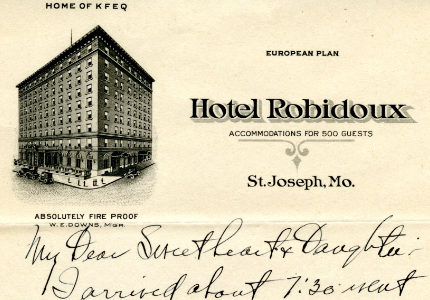 HOME OF KFEQ
EUROPEAN PLAN
Hotel Robidoux
ACCOMMODATIONS FOR 500 GUESTS
St. Joseph, Mo.
ABSOLUTELY FIRE PROOF
W. E. DOWNS, MGR.
My Dear Sweetheart & Daughter:-
I arrived about 7:30 went